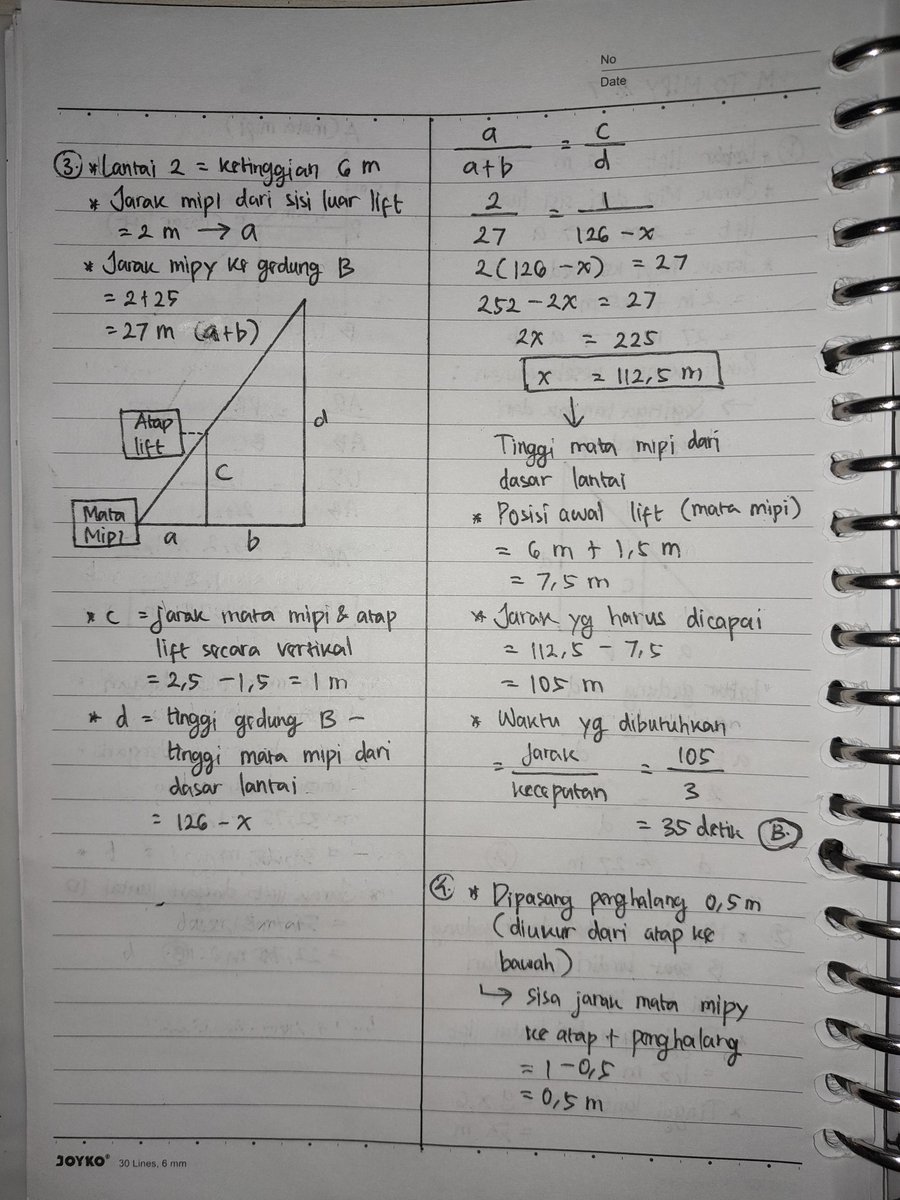 No
Date
3. * Lantai 2 = ketinggian 6 m
* Jarak mipi dari sisi luar lift
= 2 m → a
* Jarak mipy ke gedung B
= 2+25
= 27 m (a+b)
Atap
lift
d
c
Mata
Mipi
a
b
* c = jarak mata mipi & atap
lift secara vertikal
= 2,5 - 1,5 = 1 m
* d = tinggi gedung B -
tinggi mata mipi dari
dasar lantai
= 126 - x
a/(a+b) = c/d
2/27 = 1/(126 - x)
2(126 - x) = 27
252 - 2x = 27
2x = 225
x = 112,5 m
↓
Tinggi mata mipi dari
dasar lantai
* Posisi awal lift (mata mipi)
= 6 m + 1,5 m
= 7,5 m
* Jarak yg harus dicapai
= 112,5 - 7,5
= 105 m
* Waktu yg dibutuhkan
= Jarak/kecepatan = 105/3
= 35 detik B.
4. * Dipasang penghalang 0,5 m
(diukur dari atap ke
bawah)
↳ sisa jarak mata mipy
ke atap + penghalang
= 1 - 0,5
= 0,5 m
JOYKO® 30 Lines, 6 mm